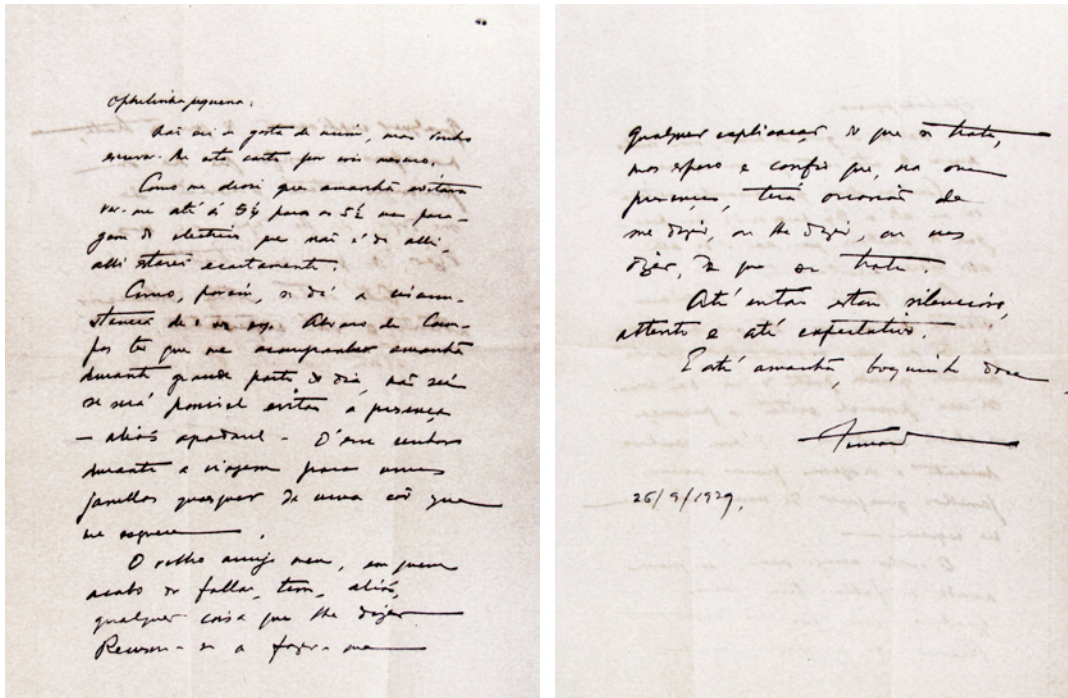 Ophelinha pequena:
Não sei se gosta de mim, mas vou-lhe
escrever-lhe esta carta por isso mesmo.
Como me disse que amanhã evitava
ver-me até ás 5¼ para as 5½ na para-
gem do electrico que não é de alli,
alli estarei exactamente.
Como, porém, se dá a circum-
stancia de o sr. eng. Alvaro de Cam-
pos ter que me acompanhar amanhã
durante grande parte do dia, não sei
se será possivel evitar a presença
— aliás agradavel — d'esse senhor
durante a viagem para umas
janellas quaesquer de uma côr que
me esquece.
O velho amigo meu, em quem
acabo de fallar, tem, aliás,
qualquer coisa que lhe dizer.
Recusa-se a fazer-me
qualquer explicação do que se trata,
mas espero e confio que, na sua
presença, terá occasião de
me dizer, ou lhe dizer, ou nos
dizer, de que se trata.
Até então estou silencioso,
attento e até expectativo.
E até amanhã, boquinha doce
Fernando
26/9/1929.